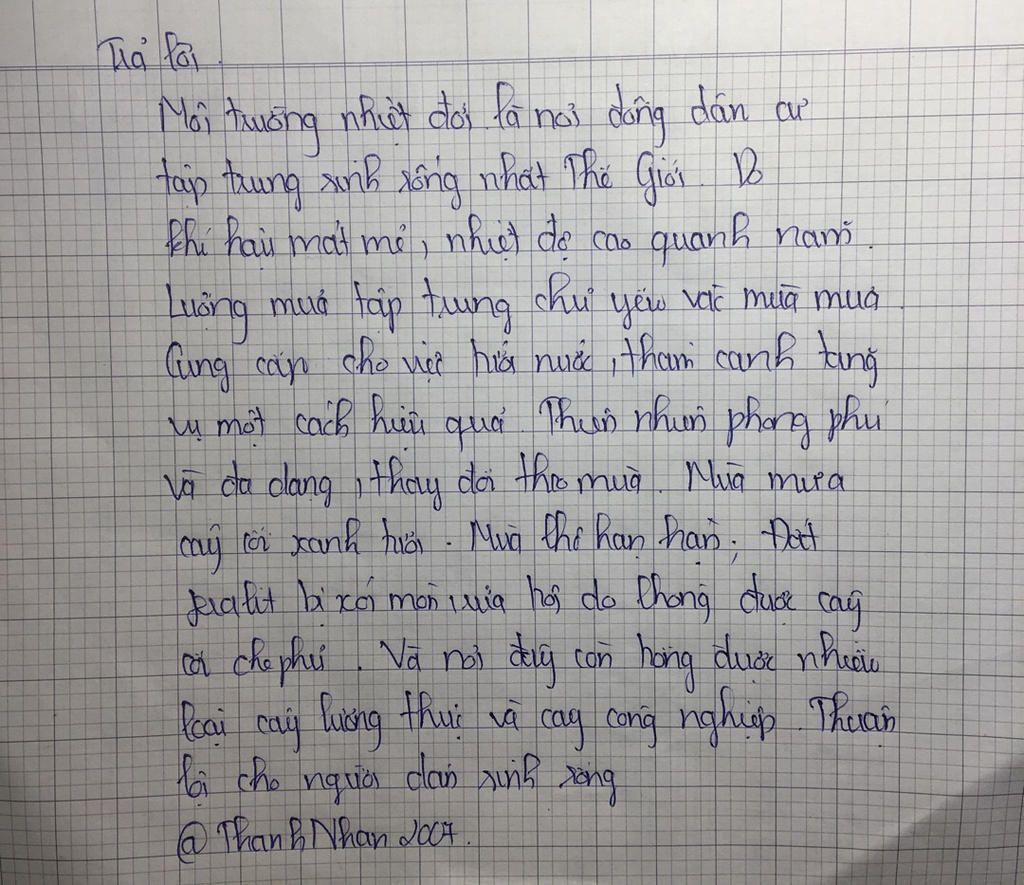 Trả lời
Môi trường nhiệt đới là nơi đông dân cư
tập trung sinh sống nhất Thế Giới. Do
khí hậu mát mẻ, nhiệt độ cao quanh năm.
Lượng mưa tập trung chủ yếu vào mùa mưa
Cung cấp cho việc tưới nước, tham canh tăng
vụ một cách hiệu quả. Thiên nhiên phong phú
và đa dạng, thay đổi theo mùa. Mùa mưa
cây cối xanh tươi. Mùa khô hạn hán, Đất
feralit bị xói mòn, rửa trôi do không được cây
cối che phủ. Và nơi đây còn trồng được nhiều
loại cây lương thực và cây công nghiệp. Thuận
lợi cho người dân sinh sống
@ThanhNhan2007.